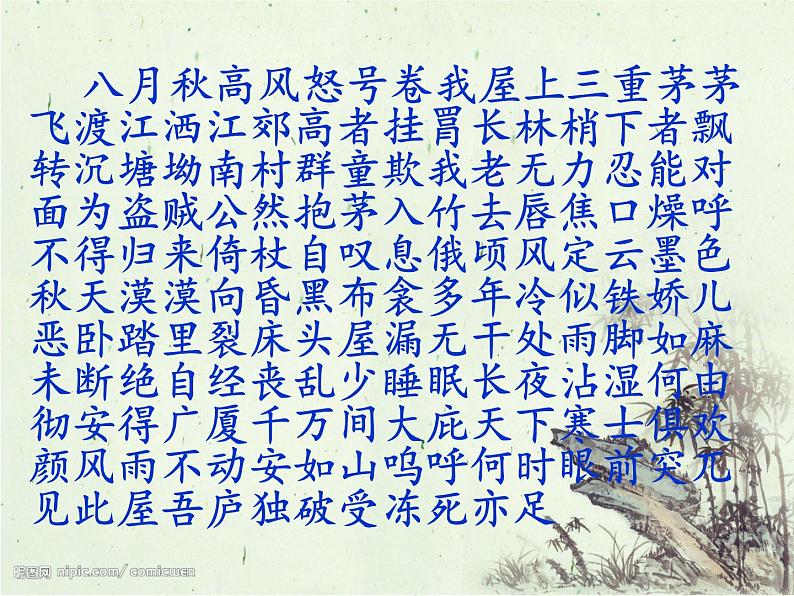 八月秋高风怒号卷我屋上三重茅茅
飞渡江洒江郊高者挂罥长林梢下者飘
转沉塘坳南村群童欺我老无力忍能对
面为盗贼公然抱茅入竹去唇焦口燥呼
不得归来倚杖自叹息俄顷风定云墨色
秋天漠漠向昏黑布衾多年冷似铁娇儿
恶卧踏里裂床头屋漏无干处雨脚如麻
未断绝自经丧乱少睡眠长夜沾湿何由
彻安得广厦千万间大庇天下寒士俱欢
颜风雨不动安如山呜呼何时眼前突兀
见此屋吾庐独破受冻死亦足
昵图网 nipic.com/ comicwen